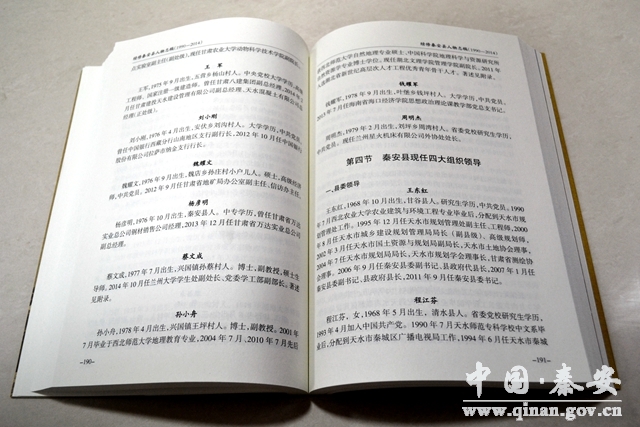 续修秦安县人物志稿(1990—2014)
点实验室副主任(副处级),现任甘肃农业大学动物科学技术学院副院长。
王 军
王军,1975年9月出生,五营乡杨山村人。中央党校大学学历,高级
刘小刚
刘小刚,1976年4月出生,安伏乡刘沟村人。大学学历,中共党员。
曾任中国银行西藏分行山南地区支行副行长,2012年10月任中国银行
股份有限公司拉萨市纳金支行行长。
魏耀文
魏耀文,1976年9月出生,魏店乡孙庄村小户儿人。硕士,高级经济
师,中共党员。2012年9月任甘肃省地矿局办公室副主任、信访办主任。
杨彦明
杨彦明,1976年10月出生,秦安县人。中专学历,曾任甘肃省万达
实业总公司钢材销售公司经理,2013年12月任甘肃省万达实业总公司
副总经理。
蔡文成
蔡文成,1977年7月出生,兴国镇孙蔡村人。博士,副教授,硕士生
导师,2014年10月任兰州大学学生处副处长、党委学工部副部长。著述
见附录。
孙小舟
孙小舟,1978年4月出生,兴国镇王坪村人。博士,副教授。2001年
7月毕业于西北师范大学地理教育专业,2004年7月、2010年7月先后
-190-
续修秦安县人物志稿(1990—2014)
钱耀军
钱耀军,1978年9月出生,叶堡乡钱洋村人。大学学历,中共党员。
2013年7月任海南省海口经济学院思想政治理论课教学部党总支书记。
周明杰
周明杰,1979年2月出生,刘坪乡周湾村人。省委党校研究生学历,
中共党员。现任兰州星火机床有限公司对外协处处长。
第四节 秦安县现任四大组织领导
一、县委领导
王东红
王东红,1968年10月出生,甘谷县人。研究生学历,中共党员。1990
年7月西北农业大学农业建筑与环境工程专业毕业后,分配到天水市规
划管理处工作。1995年12月任天水市规划管理处副主任、工程师,2000
年8月任天水市城乡建设规划管理局局长(副县级)、高级规划师,
2002年3月任天水市国土资源与规划局副局长、天水市土地协会理事,
2004年7月任天水市规划局局长、天水市规划学会理事长、甘肃省测绘协
会理事。2006年9月任秦安县委副书记、县政府代县长,2007年1月任
秦安县委副书记、县政府县长,2011年9月任秦安县委书记。
程江芬
程江芬,女,1968年5月出生,清水县人。省委党校研究生学历,
1993年4月加入中国共产党。1990年7月天水师范专科学校中文系毕
业,分配到天水市秦城区广播电视局工作,1994年6月任天水市秦城
-191-
中国·秦安
www.qinan.gov.cn